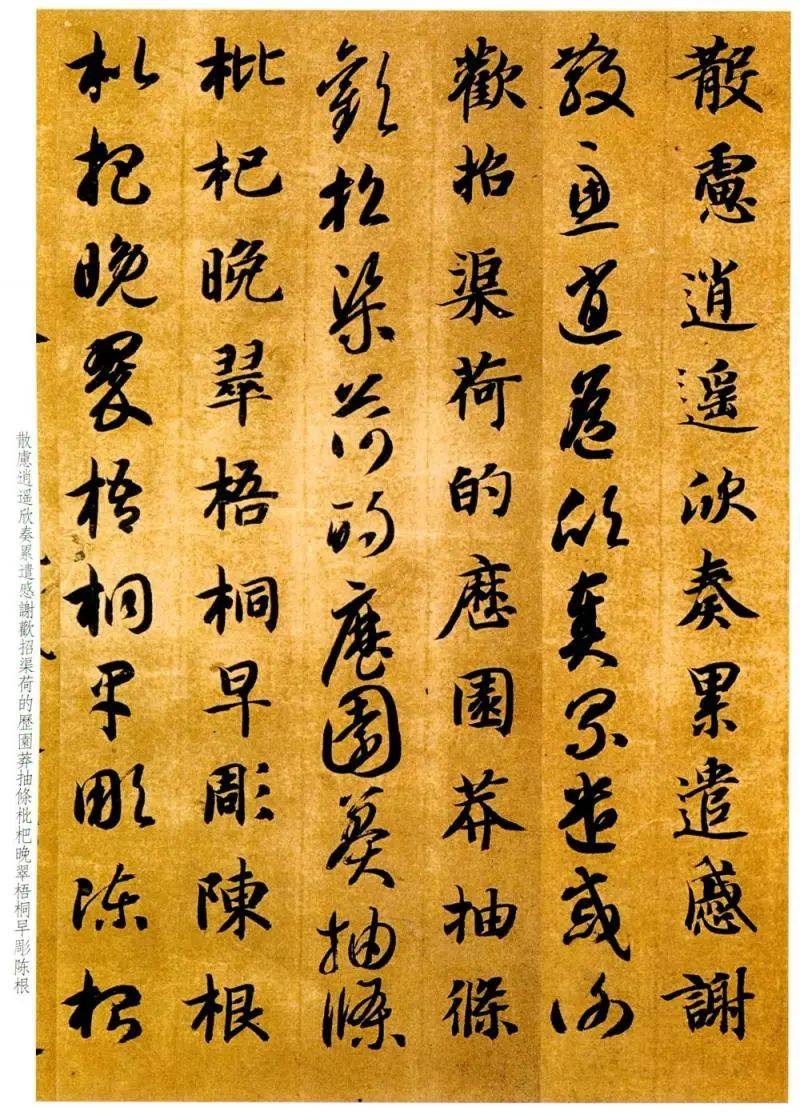 散慮逍遥欣奏累遣慼謝
散慮逍遥欣奏累遣慼謝
歡招渠荷的歷園莽抽條
歡招渠荷的歷園莽抽條
枇杷晚翠梧桐早彫陳根
枇杷晚翠梧桐早彫陳根
散慮逍遥欣奏累遣感謝歡招渠荷的歷園莽抽條枇杷晚翠梧桐早彫陈根